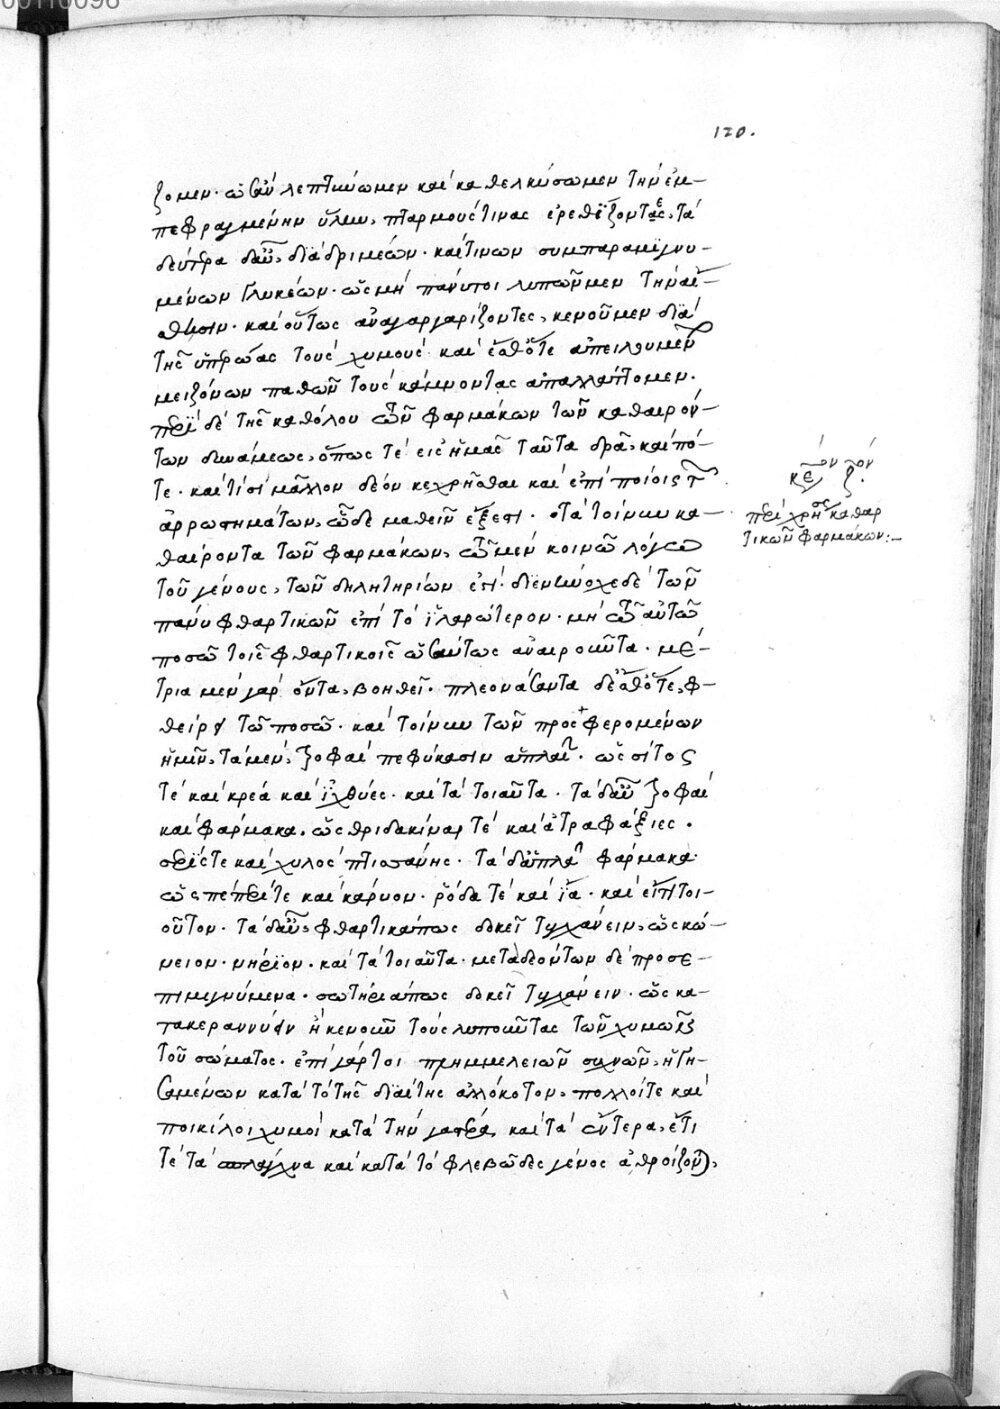 120.
ζομεν· ὡς ἂν λεπτύνωμεν καὶ καθελκύσωμεν τὴν ἐμ-
πεφραγμένην ὕλην, πταρμούς τινας ἐρεθίζοντες, τὰ
δεύτερα δ' αὖ, διὰ δριμέων· καί τινων συμπαραμιγνυ-
μένων γλυκέων· ὡς μὴ πάνυ τοι λυπῶμεν τὴν αἴ-
σθησιν· καὶ οὕτως ἀναγαργαρίζοντες, κενοῦμεν διὰ
τῆς ὑπερώας τοὺς χυμοὺς καὶ ἔσθ' ὅτε ἀπειλουμένων
μειζόνων παθῶν τοὺς κάμνοντας ἀπαλλάττομεν.
περὶ δὲ τῆς καθόλου τῶν φαρμάκων τῶν καθαιρόν-
των δυνάμεως, ὅπως τὲ εἰς ἡμᾶς ταῦτα δρᾶ, καὶ πό-
τε· καὶ τίσι μᾶλλον δέον κεχρῆσθαι καὶ ἐπὶ ποίοις τῶν
ἀρρωστημάτων, ὧδε μαθεῖν ἔξεστι· τὰ τοίνυν κα-
θαίροντα τῶν φαρμάκων, τῶ μὲν κοινῶ λόγω
τοῦ γένους, τῶν δηλητηρίων ἐστί· διενήνοχε δὲ τῶν
πάνυ φθαρτικῶν ἐπὶ τὸ ἱλαρώτερον· μὴ τῶ αὐτῶ
ποσῶ τοῖς φθαρτικοῖς ὡσαύτως ἀναιροῦντα· μέ-
τρια μὲν γὰρ ὄντα, βοηθεῖ· πλεονάσαντα δὲ ἔσθ' ὅτε, φ-
θείρει τῶ ποσῶ· καὶ τοίνυν τῶν προσφερομένων
ἡμῖν, τὰ μὲν, τροφαὶ πεφύκασιν ἁπλαῖ· ὡς σῖτος
τὲ καὶ κρέα καὶ ἰχθύες· καὶ τὰ τοιαῦτα· τὰ δ' αὖ τροφαὶ
καὶ φάρμακα, ὡς θριδακίναι τὲ καὶ ἀτραφάξιες·
σέρις τε καὶ χυλὸς πτισάνης· τὰ δ' ἁπλᾶ φάρμακα·
ὡς πέπερί τε καὶ κάρυον· ῥόδα τὲ καὶ ἴα· καὶ εἴ τι τοι-
οῦτον· τὰ δ' αὖ, φθαρτικά πως δοκεῖ τυγχάνειν, ὡς κώ-
νειον· νήριον· καὶ τὰ τοιαῦτα· μετὰ δεόντων δὲ προσε-
πιμιγνύμενα· σωτήρια πως δοκεῖ τυγχάνειν· ὡς κα-
τακεραννύειν ἢ κενοῦν τοὺς λυποῦντας τῶν χυμῶν ἐξ
τοῦ σώματος· ἐπὶ γάρ τοι πλημμελειῶν συχνῶν, ἡγη-
σαμένων κατὰ τὸ τῆς διαίτης ἀλλόκοτον, πολλοί τε καὶ
ποικίλοι χυμοὶ κατὰ τὴν γαστέρα, καὶ τὰ ἔντερα, ἔτι
τὲ τὰ σπλάγχνα καὶ κατὰ τὸ φλεβῶδες γένος ἀθροίζονται,
περὶ χρήσεως καθαρ
τικῶν φαρμάκων:-